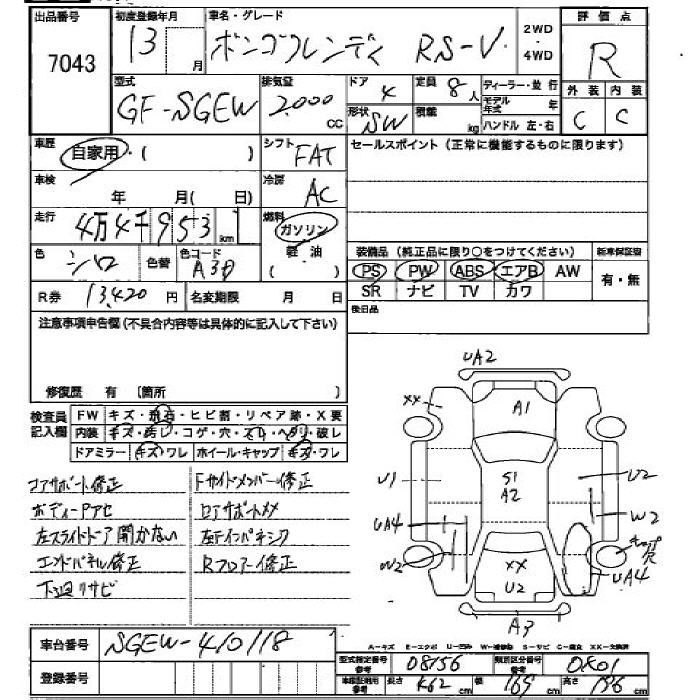 出品番号 初度登録年月 車名・グレード 2WD・4WD 評価点
7043 13 月 ボンゴフレンディ RS-V R
型式 排気量 ドア 定員 ディーラー・並行 外装 内装
GF-SGEW 2,000 cc 4 8人 モデル年式 年 C C
形状 SW 積載 kg ハンドル 左・右
車歴 自家用・( ) シフト FAT セールスポイント(正常に機能するものに限ります)
車検 年 月( 日) 冷房 AC
走行 4万4千953 km 燃料 ガソリン 軽油 ( )
色 シロ 色替 色コード A3D
装備品(純正品に限り○をつけてください) 新車保証書
PS PW ABS エアB AW 有・無
SR ナビ TV カワ
R券 13,420 円 名変期限 月 日
後日品
注意事項申告欄(不具合内容等は具体的に記入して下さい)
修復歴 有 〔箇所 〕
検査員記入欄 FW キズ・飛石・ヒビ割・リペア跡・X要
内装 キズ・汚れ・コゲ・穴・スレ・ヘタリ・破レ
ドアミラー キズ・ワレ ホイール・キャップ キズ・ワレ
コアサポート修正 Fサイドメンバー修正
ボディーアセ ロアサポートメメ
左スライドドア開かない
エンドパネル修正 Rフロアー修正
下廻りサビ
UA2
XX A1
U1 S1 A2 U2
UA4 W2
W2 XX U2 UA4
A3
A-キズ E-エクボ U-凹み W-補修跡 S-サビ C-腐食 XX-交換済
車台番号 SGEW-410118
型式指定番号 参考 08156 類別区分番号 参考 0801
登録番号 車体証明用参考 長さ 462 cm 幅 169 cm 高さ 196 cm